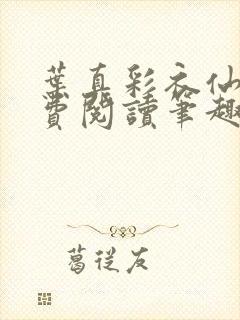 葉真彩衣仙
費閱讀筆趣
葛從友